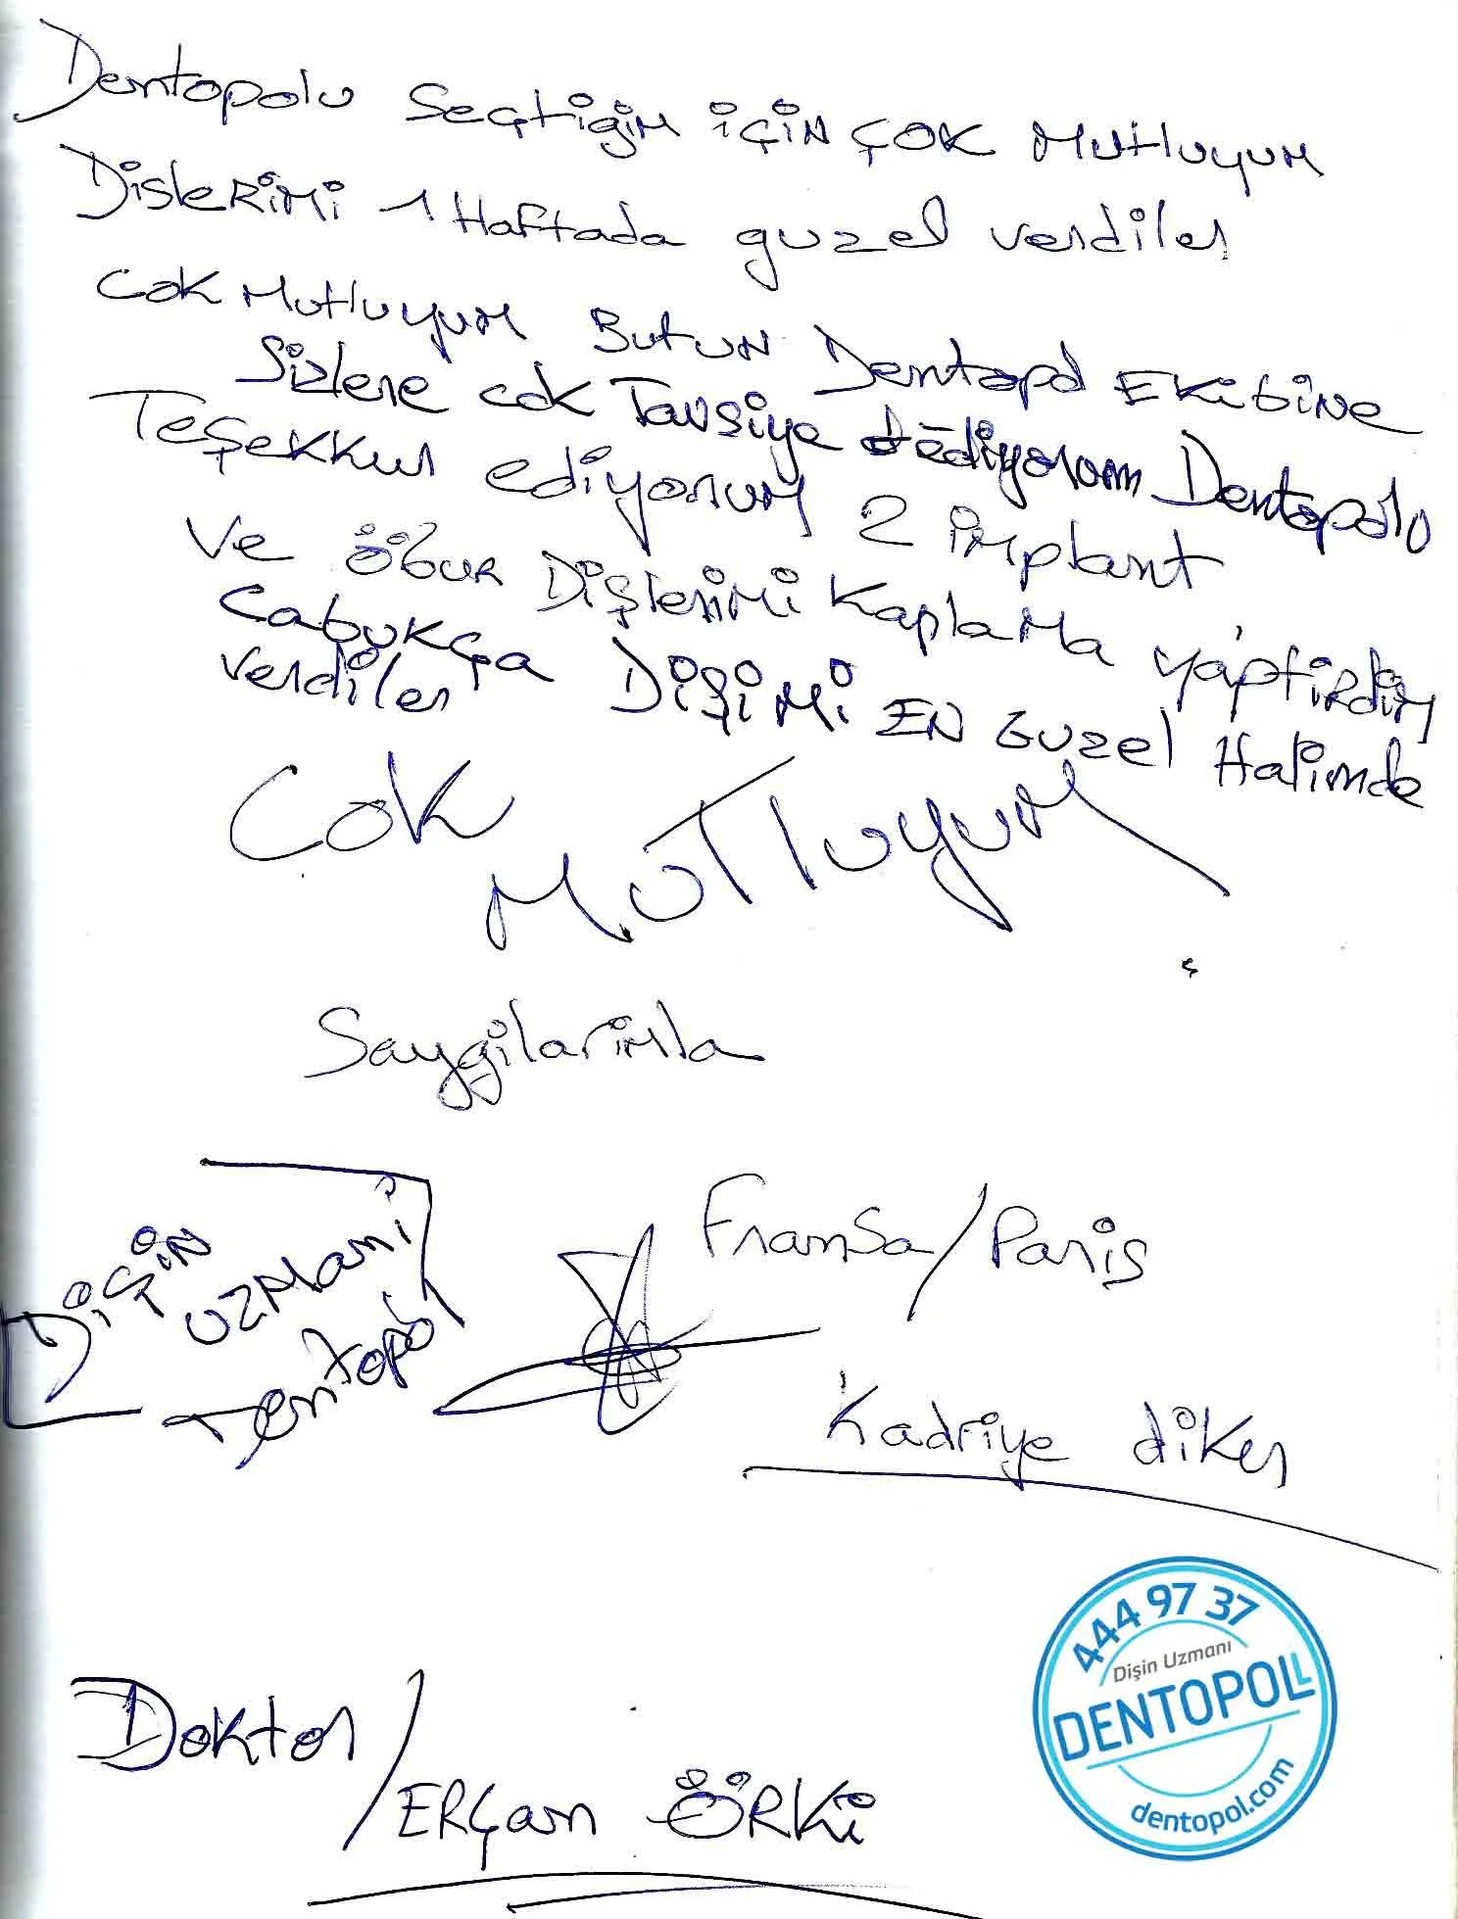 Dentopolu Seçtiğim için çok Mutluyum
Dislerimi 1 Haftada guzel verdiler
Cok Mutluyum Butun Dentopol Ekibine
Sizlere cok Tavsiye ediyorum Dentopolu
Teşekkur ediyorum 2 implant
Ve öbur Dişlerimi Kaplama yaptirdim
Cabukça Dişimi EN Guzel Halimde
verdiler
Cok
Mutluyum
Saygilarimla
Dişin
uzmani
Dentopol
Fransa/Paris
Kadriye diker
444 97 37
Dişin Uzmanı
DENTOPOL
dentopol.com
Doktor/
ERÇan ÖRKi